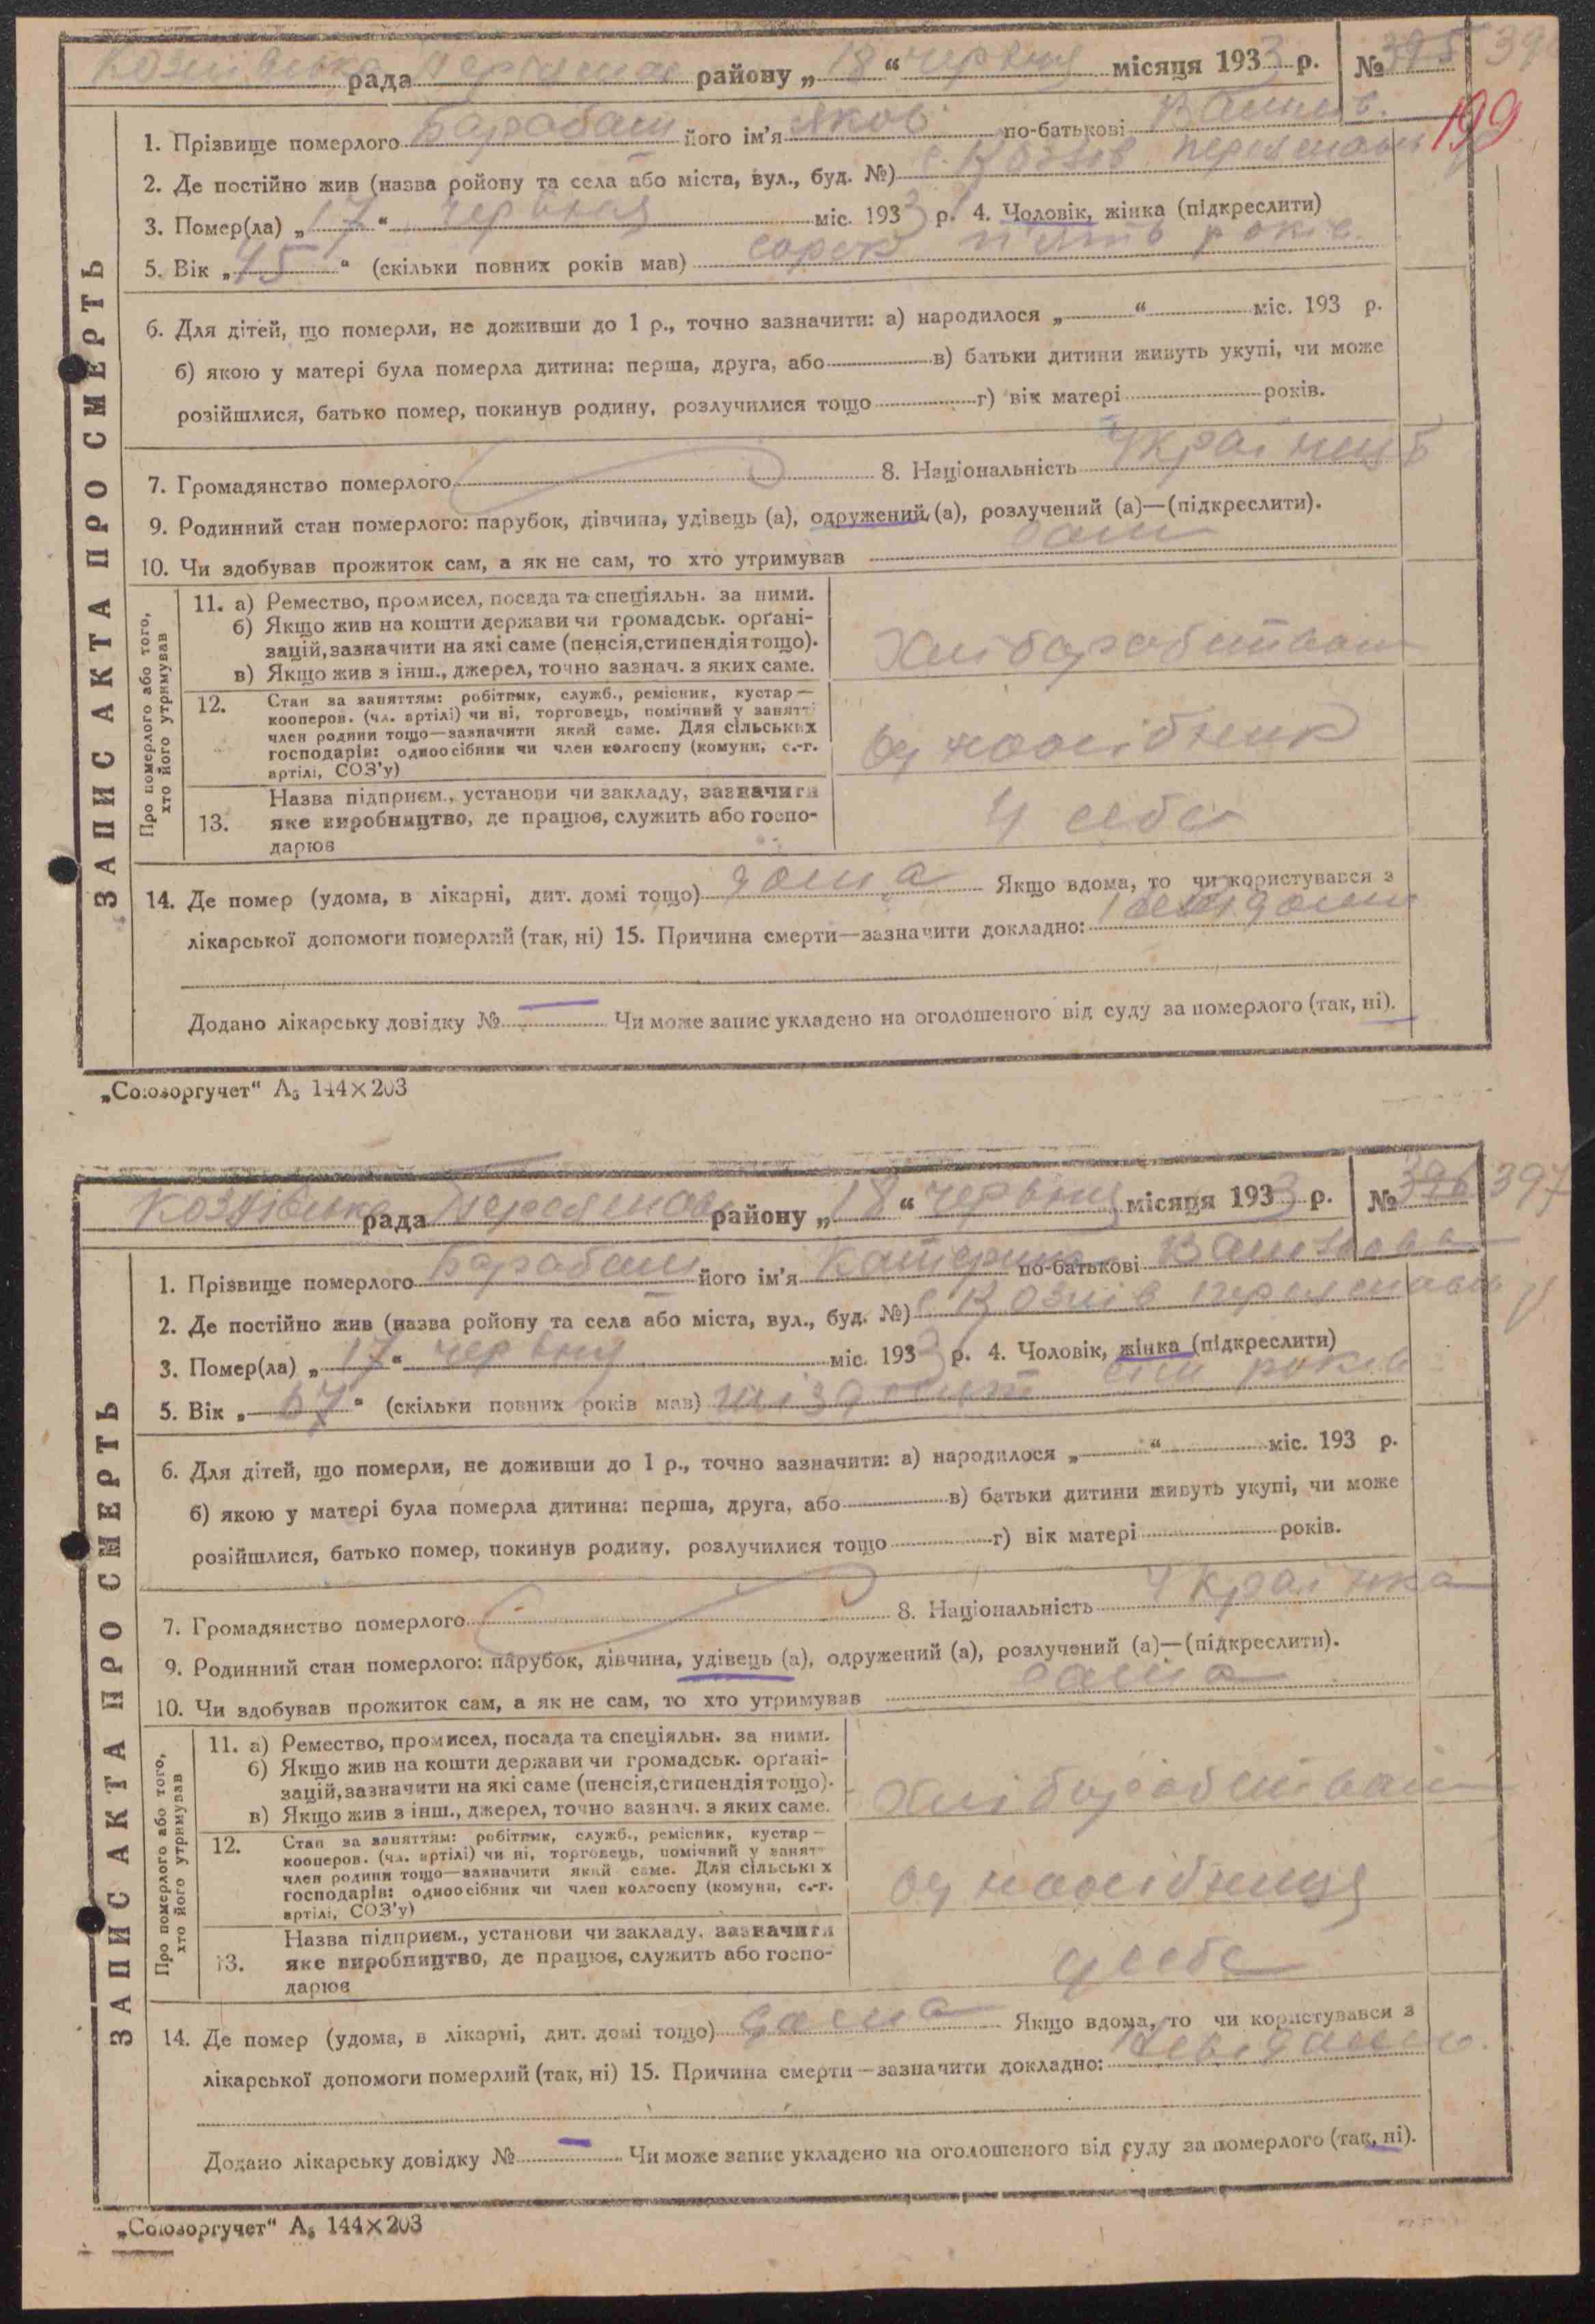 Козіївська рада районy „ 18 “ червня місяця 1933 р. № 395
199
ЗАПИС АКТА ПРО СМЕРТЬ
1. Прізвище померлого Барабаш його ім'я Яков по-батькові
2. Де постійно жив (назва ройону та села або міста, вул., буд. №) с. Козіїв
3. Помер(ла) „ 17 “ червня міс. 1933 р. 4. Чоловік, жінка (підкреслити)
5. Вік „ 45 “ (скільки повних років мав) сорок пять років
6. Для дітей, що померли, не доживши до 1 р., точно зазначити: а) народилося „ “ міс. 193 р.
б) якою у матері була померла дитина: перша, друга, або в) батьки дитини живуть укупі, чи може
розійшлися, батько помер, покинув родину, розлучилися тощо г) вік матері років.
7. Громадянство померлого 8. Національність Українец
9. Родинний стан померлого: парубок, дівчина, удівець (а), одружений (а), розлучений (а)—(підкреслити).
10. Чи здобував прожиток сам, а як не сам, то хто утримував сам
Про померлого або того,
хто його утримував
11. а) Ремество, промисел, посада та спеціяльн. за ними.
б) Якщо жив на кошти держави чи громадськ. орґані-
зацій, зазначити на які саме (пенсія, стипендія тощо).
в) Якщо жив з інш., джерел, точно зазнач. з яких саме.
12. Стан за заняттям: робітник, служб., ремісник, кустар —
кооперов. (чл. артілі) чи ні, торговець, помічний у занятті
член родини тощо—зазначити який саме. Для сільських
господарів: одноосібник чи член колгоспу (комуни, с.-г.
артілі, СОЗ'у)
одноосібник
Назва підприєм., установи чи закладу, зазначити
13. яке виробництво, де працює, служить або госпо-
дарює
У себе
14. Де помер (удома, в лікарні, дит. домі тощо) дома Якщо вдома, то чи користувався з
лікарської допомоги померлий (так, ні) 15. Причина смерти—зазначити докладно:
Додано лікарську довідку № — Чи може запис укладено на оголошеного від суду за померлого (так, ні).
„Союзоргучет“ А₅ 144×203
Козіївська рада районy „ 18 “ червня місяця 1933 р. № 396 397
ЗАПИС АКТА ПРО СМЕРТЬ
1. Прізвище померлого Барабаш його ім'я Катерина по-батькові
2. Де постійно жив (назва ройону та села або міста, вул., буд. №) с. Козіїв
3. Помер(ла) „ 17 “ червня міс. 1933 р. 4. Чоловік, жінка (підкреслити)
5. Вік „ 67 “ (скільки повних років мав) шіздесят сім років
6. Для дітей, що померли, не доживши до 1 р., точно зазначити: а) народилося „ “ міс. 193 р.
б) якою у матері була померла дитина: перша, друга, або в) батьки дитини живуть укупі, чи може
розійшлися, батько помер, покинув родину, розлучилися тощо г) вік матері років.
7. Громадянство померлого 8. Національність Українка
9. Родинний стан померлого: парубок, дівчина, удівець (а), одружений (а), розлучений (а)—(підкреслити).
10. Чи здобував прожиток сам, а як не сам, то хто утримував сама
Про померлого або того,
хто його утримував
11. а) Ремество, промисел, посада та спеціяльн. за ними.
б) Якщо жив на кошти держави чи громадськ. орґані-
зацій, зазначити на які саме (пенсія, стипендія тощо).
в) Якщо жив з інш., джерел, точно зазнач. з яких саме.
12. Стан за заняттям: робітник, служб., ремісник, кустар —
кооперов. (чл. артілі) чи ні, торговець, помічний у занят
член родини тощо—зазначити який саме. Для сільських
господарів: одноосібник чи член колгоспу (комуни, с.-г.
артілі, СОЗ'у)
одноосібниця
Назва підприєм., установи чи закладу, зазначити
13. яке виробництво, де працює, служить або госпо-
дарює
у себе
14. Де помер (удома, в лікарні, дит. домі тощо) дома Якщо вдома, то чи користувався з
лікарської допомоги померлий (так, ні) 15. Причина смерти—зазначити докладно: Невідомо.
Додано лікарську довідку № — Чи може запис укладено на оголошеного від суду за померлого (так, ні).
„Союзоргучет“ А₅ 144×203